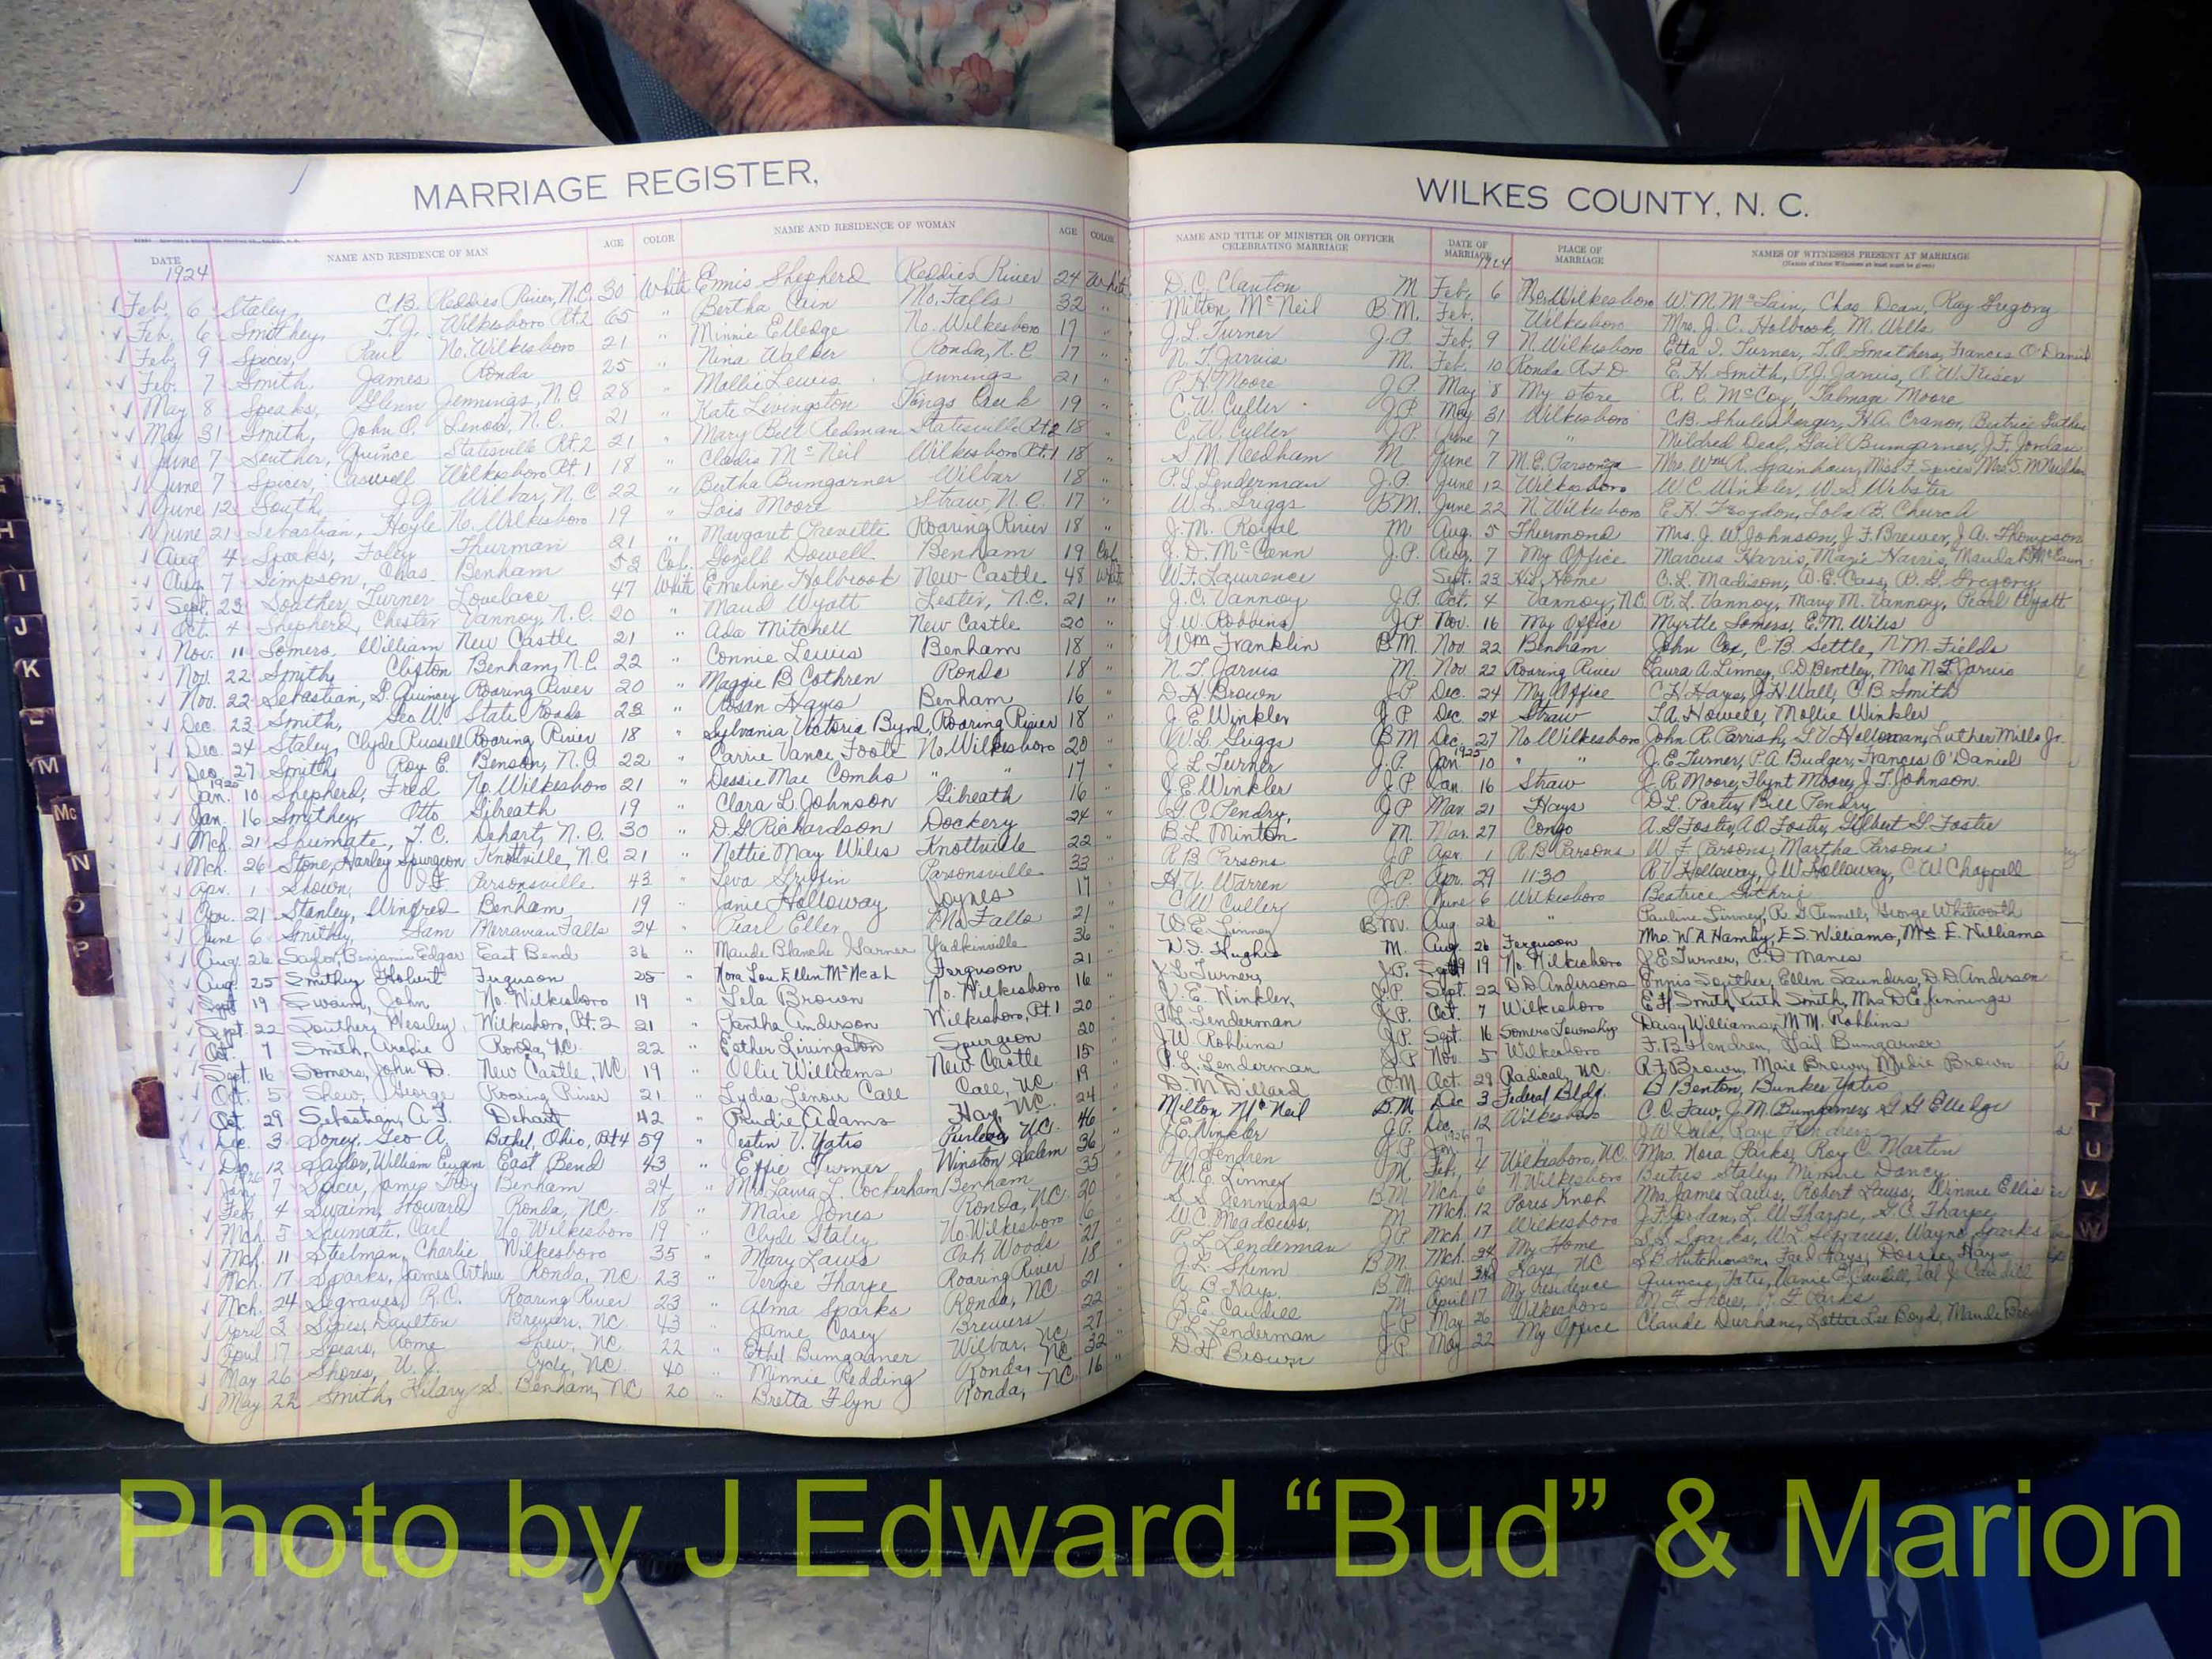 MARRIAGE REGISTER, WILKES COUNTY, N. C.
DATE NAME AND RESIDENCE OF MAN AGE COLOR NAME AND RESIDENCE OF WOMAN AGE COLOR NAME AND TITLE OF MINISTER OR OFFICER CELEBRATING MARRIAGE DATE OF MARRIAGE PLACE OF MARRIAGE NAMES OF WITNESSES PRESENT AT MARRIAGE
(Names of three Witnesses at least must be given)
1924 1924
Feb. 6 Staley, C.B. Reddies River, N.C. 30 White Ennis Shepherd Reddies River 24 White D.C. Clanton M Feb. 6 No. Wilkesboro W.M. McLain, Chas Dean, Ray Gregory
Feb. 6 Smithey, T.J. Wilkesboro Rt.2 65 " Bertha Cain Mo. Falls 32 " Milton McNeil B.M. Feb. Wilkesboro Mrs. J.C. Holbrook, M. Wells
Feb. 9 Spicer, Paul No. Wilkesboro 21 " Minnie Elledge No. Wilkesboro 17 " J.L. Turner J.P. Feb. 9 N. Wilkesboro Etta I. Turner, T.O. Smathers, Frances O'Daniel
Feb. 7 Smith, James Ronda 25 " Nina Walker Ronda, N.C. 17 " N.T. Jarvis M. Feb. 10 Ronda R.F.D E.H. Smith, P.J. Jarvis, A.W. Kiser
May 8 Speaks, Glenn Jennings, N.C. 28 " Mollie Lewis Jennings 21 " P.H. Moore J.P. May 8 My store R.C. McCoy, Talmage Moore
May 31 Smith, John O. Lenoir, N.C. 21 " Kate Livingston Kings Creek 19 " C.W. Culler J.P. May 31 Wilkesboro C.B. Shulenberger, H.A. Cranor, Beatrice Guthrie
June 7 Souther, Quince Statesville Rt.2 21 " Mary Bell Redman Statesville Rt.2 18 " C.W. Culler J.P. June 7 " Mildred Deal, Gail Bumgarner, J.F. Jordan
June 7 Spicer, Caswell Wilkesboro Rt.1 18 " McNeil Wilkesboro Rt.1 18 " S.M. Needham M June 7 M.E. Parsonage Mrs. Wm. R. Spainhour, Miss F. Spicer, Mrs.
June 12 South, J.G. Wilbar, N.C. 22 " Bertha Bumgarner Wilbar 18 " P.L. Lenderman J.P. June 12 Wilkesboro W.C. Winkler, W.S. Webster
June 21 Sebastian, Hoyle No. Wilkesboro 19 " Lois Moore Straw, N.C. 17 " W.L. Griggs B.M. June 22 N. Wilkesboro E.H. Lola B. Church
Aug 4 Sparks, Foley Thurman 21 " Margaret Roaring River 18 " J.M. Royal M Aug. 5 Thurmond Mrs. J.W. Johnson, J.F. Brewer, J.A. Thompson
Aug. 7 Simpson, Chas. Benham 53 Col. Gozell Dowell Benham 19 Col. J.D. McCann J.P. Aug. 7 My Office Marcus Harris, Magie Harris, Mauda McCann
Sept. 23 Souther, Turner Lovelace 47 White Emeline Holbrook New Castle 48 White W.F. Lawrence Sept. 23 His Home C.L. Madison, A.E. Cass, R.G. Gregory
Oct. 4 Shepherd, Chester Vannoy, N.C. 20 " Maud Wyatt Lester, N.C. 21 " J.C. Vannoy J.P. Oct. 4 Vannoy, N.C. R.L. Vannoy, Mary M. Vannoy, Pearl Wyatt
Nov. 11 Somers, William New Castle 21 " Ada Mitchell New Castle 20 " J.W. Robbins J.P. Nov. 16 My Office Myrtle Somers, E.M. Wiles
Nov. 22 Smith, Clifton Benham, N.C. 22 " Connie Lewis Benham 18 " Wm Franklin B.M. Nov. 22 Benham John Cox, C.B. Settle, N.M. Fields
Nov. 22 Sebastian, G. Quincey Roaring River 20 " Maggie B Cothren Ronda 18 " N.T. Jarvis M. Nov 22 Roaring River Laura A. Linney, O.D. Bentley, Mrs N.T. Jarvis
Dec. 23 Smith, Geo W. State Roads 23 " Rosan Hayes Benham 16 D.H. Brown J.P. Dec. 24 My Office C.H. Hays, J.H. Wall, C.B. Smith
Dec. 24 Staley, Clyde Russell Roaring River 18 " Sylvania Victoria Byrd, Roaring River 18 " J.E. Winkler J.P. Dec. 24 Straw T.A. Howell, Mollie Winkler
Dec. 27 Smith, Roy E. Benson, N.C. 22 " Carrie Vance Foote No. Wilkesboro 20 " W.L. Griggs B.M. Dec. 27 No Wilkesboro John R. Parrish, Holloman, Luther Mills Jr.
1925 1925
Jan. 10 Shepherd, Fred No. Wilkesboro 21 " Dessie Mae Combs " " 17 J.L. Turner J.P. Jan. 10 " " J.E. Turner, P.A. Budger, Frances O'Daniel
Jan. 16 Smithey, Otto Gilreath 19 " Clara L. Johnson Gilreath 16 J.E. Winkler J.P. Jan. 16 Straw R. Moore, Flynt Moore, J.T. Johnson.
Mch. 21 Shumate, T.C. Dehart, N.C. 30 " D.G. Richardson Dockery 24 G.C. Pendry, J.P. Mar. 21 Hays D.L. Porter, Bill Pendry
Mch. 26 Stone, Harley Spurgeon Knottville, N.C. 21 " Nettie May Wiles Knottville 22 B.L. Minton M. Mar. 27 Congo A.G. Foster, A.O. Foster, Gilbert G. Foster
Apr. 1 Shown, Parsonsville 43 " Leva Griffin Parsonsville 33 R.B. Parsons J.P. Apr. 1 R.B. Parsons W.F. Parsons, Martha Parsons
Apr. 21 Stanley, Winfred Benham 19 " Janie Holloway Joynes 17 H.Y. Warren J.P. Apr. 29 11:30 R.V. Holloway, J.W. Holloway, C.W. Chappell
June 6 Smithey, Sam Moravian Falls 24 " Pearl Eller Mo. Falls 21 C.W. Culler J.P. June 6 Wilkesboro Beatrice Guthrie
Aug. 26 Saylor, Benjamin Edgar East Bend 36 " Maude Blanche Garner Yadkinville 36 W.E. Linney B.M. Aug. 26 " Pauline Linney, R.G. Pennell, George Whitworth
Aug. 25 Smithey Hobert Ferguson 25 " Nora Lou Ellen McNeal Ferguson 21 W.I. Hughes M. Aug. 26 Ferguson Mrs. W.A. Hamby, E.S. Williams, Mrs. E. Williams
Sept 19 Swaim, John, No. Wilkesboro 19 " Lela Brown No. Wilkesboro 16 J.L. Turner, J.P. Sept 19 No. Wilkesboro J.E. Turner, C.D. Manes
Sept. 22 Souther, Wesley, Wilkesboro, Rt. 2 21 " Jantha Anderson Wilkesboro, Rt. 1 20 J.E. Winkler, J.P. Sept. 22 D.D. Andersons Ennis Souther, Ellen Saunders, D.D. Anderson
Oct. 7 Smith, Archie Ronda, N.C. 22 " Esther Livingston Spurgeon 20 P.L. Lenderman J.P. Oct. 7 Wilkesboro E.H. Smith, Ruth Smith, Mrs. D.C. Jennings
Sept. 16 Somers, John D. New Castle, NC 19 " Ollie Williams New Castle 15 J.W. Robbins J.P. Sept 16 Somers Township Daisy Williams, M.M. Robbins
Oct. 5 Shew, George Roaring River 21 " Lydia Lenoir Call Call, NC 19 P.L. Lenderman J.P. Nov. 5 Wilkesboro F.B. Hendren, Gail Bumgarner
Oct. 29 Sebastian, A.F. Dehart 42 " Prudie Adams Hay, N.C. 24 D.M. Dillard O.M Oct. 29 Radical, N.C. R.F. Brown, Maie Brown, Medie Brown
Dec. 3 Sorey, Geo A. Bethel, Ohio, Rt 4 59 " Jestin V. Yates Purlear, N.C. 46 Milton McNeil B.M. Dec 3 Federal Bldg. B. Benton, Bunker Yates
Dec. 12 Saylor, William Eugene East Bend 43 " Effie Turner Winston Salem 36 J.E. Winkler J.P. Dec. 12 Wilkesboro C.C. Faw, J.M. Bumgarner, G.G. Elledge
1926 1926
Jan. 7 Spicer, James Troy Benham 24 " Mrs Laura L. Cockerham Benham 35 J.J. Hendren J.P. Jan. 7 " J.W. Dula, Raye Hendren
Feb. 4 Swaim, Howard Ronda, NC. 18 " Marie Jones Ronda, NC 20 W.E. Linney M. Feb. 4 Wilkesboro, N.C. Mrs. Nora Parks, Roy C. Martin
Mch. 5 Shumate, Carl No. Wilkesboro 19 " Clyde Staley No. Wilkesboro S.S. Jennings B.M. Mch. 6 N. Wilkesboro Staley, Minnie Dancy
Mch. 11 Steelman, Charlie Wilkesboro 35 " Mary Laws Oak Woods 27 W.C. Meadows, M Mch. 12 Pores Knob Mrs. James Laws, Robert Laws, Winnie Ellis
Mch. 17 Sparks, James Arthur Ronda, NC 23 " Vergie Tharpe Roaring River 18 P.L. Lenderman J.P. Mch 17 Wilkesboro J.F. Jordan, L.W. Tharpe, G.C. Tharpe
Mch. 24 Segraves, R.C. Roaring River 23 " Alma Sparks Ronda, NC 21 J.L. B.M. Mch. 24 My Home S.S. Sparks, W.L. Segraves, Wayne Sparks
April 3 Sipes, Daulton Brewers, NC 43 " Janie Casey Brewers 22 A.B. Hays. B.M. April 3rd Hays, NC S.B. Hutchinson, Fred Hays, Hays
April 17 Spears, Rome Shew, NC 22 " Ethel Bumgarner Wilbar, NC 27 J.E. Caudill M April 17 My residence Quincie Yates, Nannie E. Caudill, Val J. Caudill
May 26 Shores, W.J. Cycle, NC. 40 " Minnie Redding Ronda, NC 32 P.L. Lenderman J.P. May 26 Wilkesboro M.F. Shores, Parks
May 22 Smith, Hilary S. Benham, NC 20 " Bretta Flyn Ronda, NC 16 D.H. Brown J.P. May 22 My Office Claude Durham, Lottie Lee Boyd, Maude
H
I
J
K
L
M
Mc
N
O
P
T
U
V
W
Photo by J Edward “Bud” & Marion